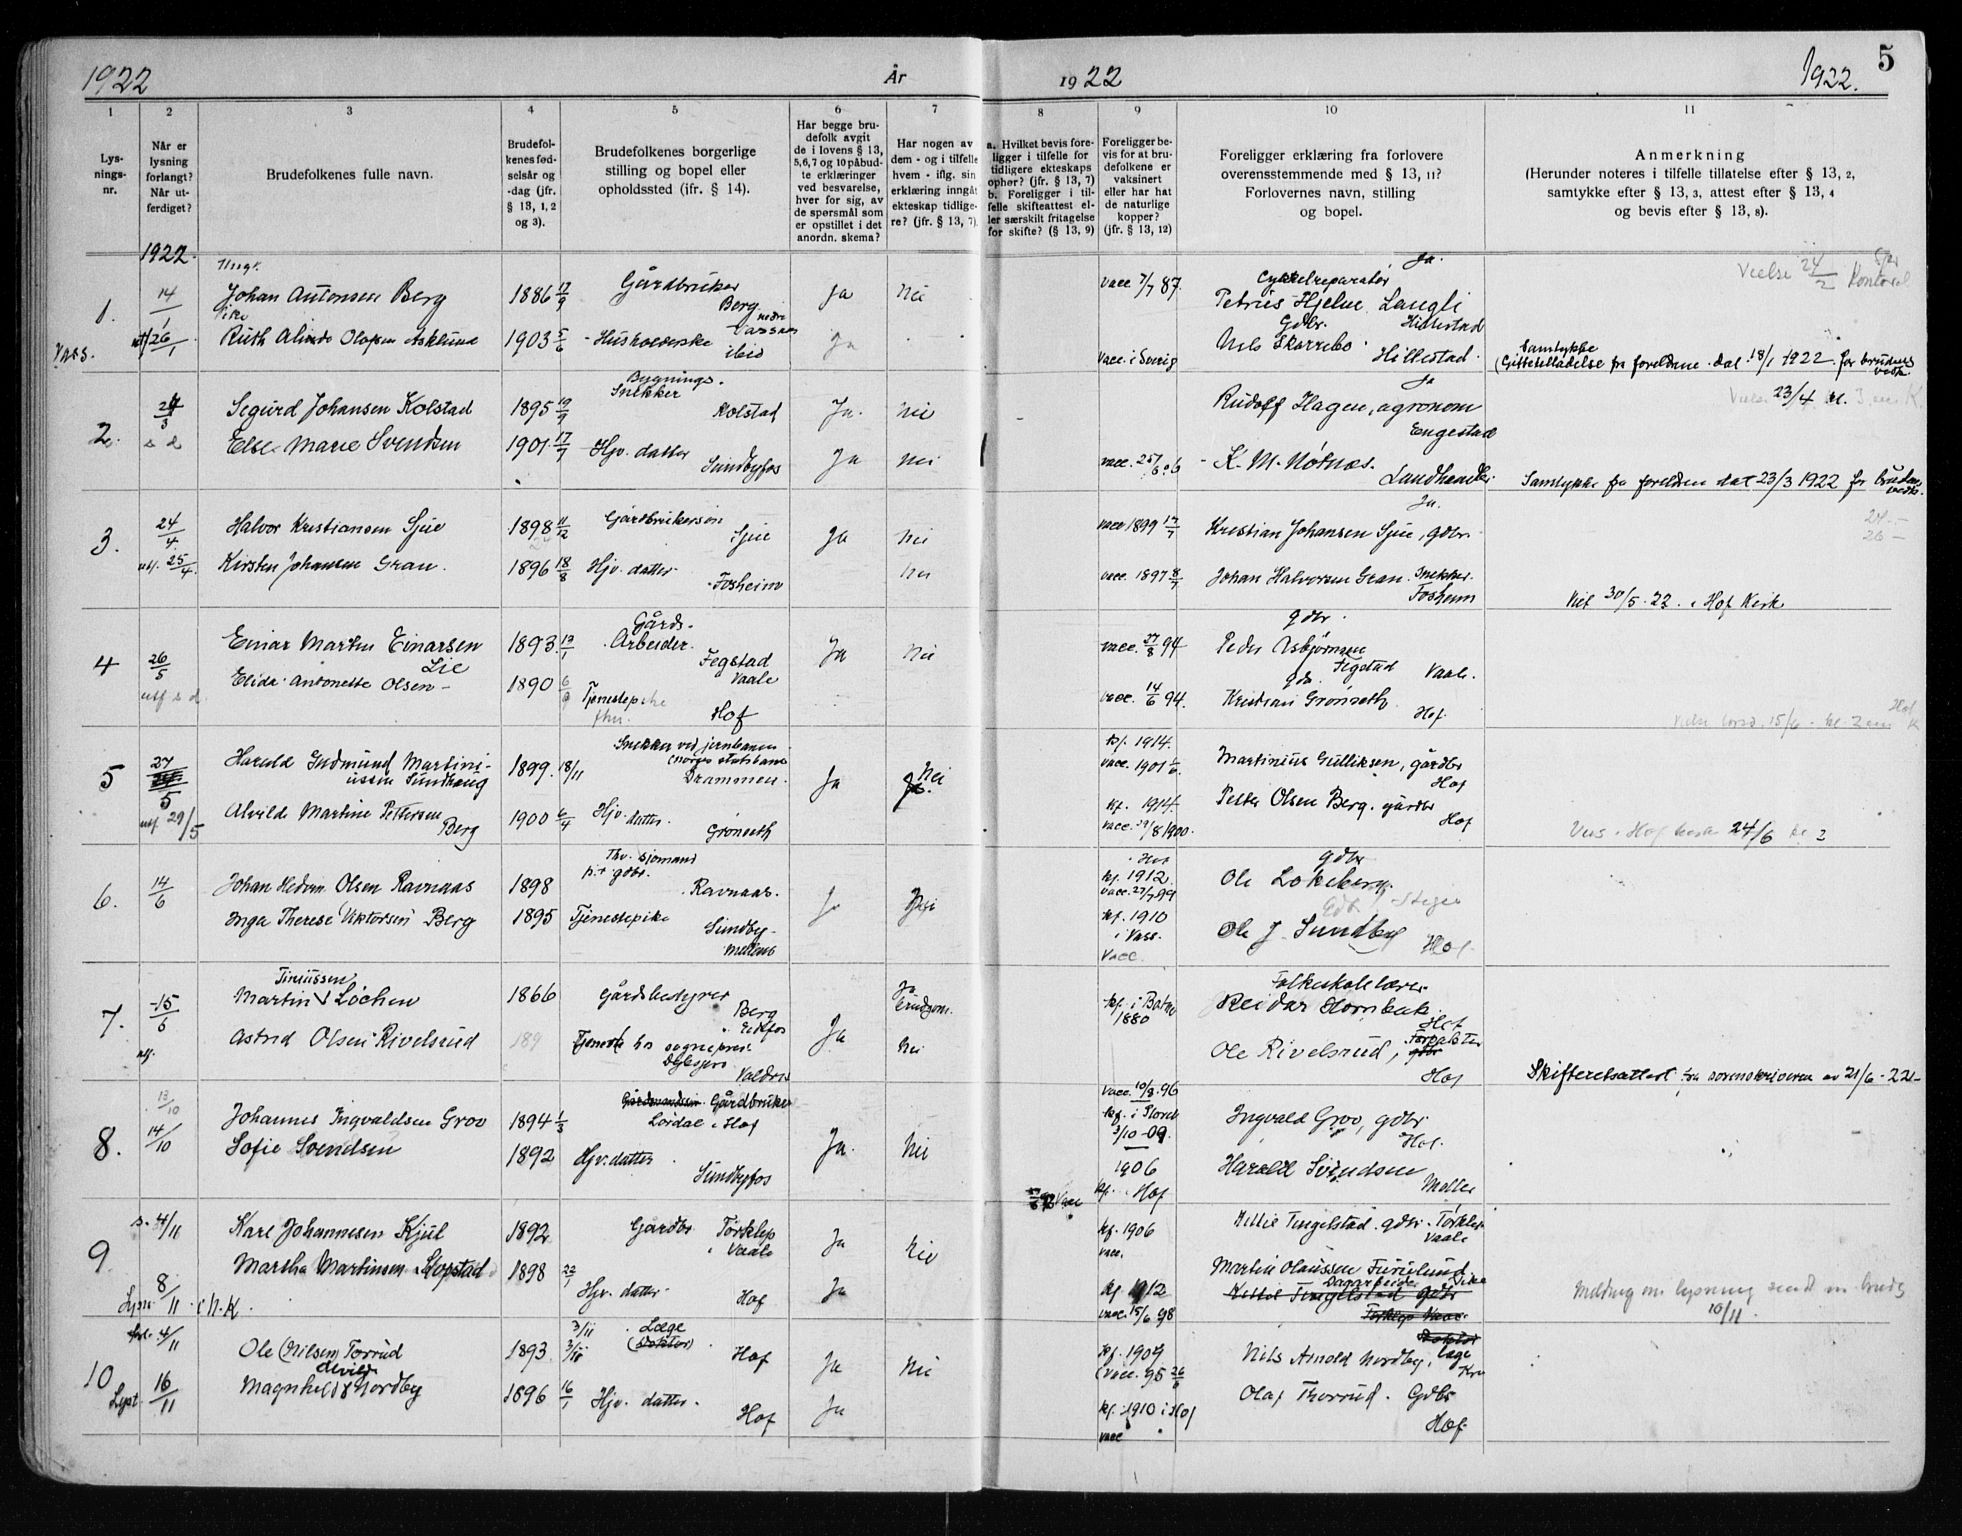 1922 År 1922 1922. 5
1 2 3 4 5 6 7 8 9 10 11
Lys-
nings-
nr.
Når er
lysning
forlangt?
Når ut-
ferdiget?
Brudefolkenes fulle navn.
Brudefol-
kenes fød-
selsår og
-dag (jfr.
§ 13, 1, 2
og 3).
Brudefolkenes borgerlige
stilling og bopel eller
opholdssted (jfr. § 14).
Har begge bru-
defolk avgit
de i lovens § 13,
5, 6, 7 og 10 påbud-
te erklæringer
ved besvarelse,
hver for sig, av
de spørsmål som
er opstillet i det
anordn. skema?
Har nogen av
dem - og i tilfelle
hvem - iflg. sin
erklæring inngåt
ekteskap tidlige-
re? (jfr. § 13, 7)
a. Hvilket bevis fore-
ligger i tilfelle for
tidligere ekteskaps
ophør? (jfr. § 13, 7)
b. Foreligger i til-
felle skifteattest el-
ler særskilt fritagelse
for skifte? (§ 13, 9)
Foreligger be-
vis for at bru-
defolkene er
vaksinert
eller har hat
de naturlige
kopper?
(jfr. § 13, 12)
Foreligger erklæring fra forlovere
overensstemmende med § 13, 11?
Forlovernes navn, stilling
og bopel.
Anmerkning
(Herunder noteres i tilfelle tillatelse efter § 13, 2,
samtykke efter § 13, 3, attest efter § 13, 4
og bevis efter § 13, 8).
1922.
Ungk. Gårdbruker Ja. Vielse 24/2
1. 14/1 Johan Antonsen Berg 1886 17/9 Berg Ja Nei vacc 7/7 87. Cykkelreparatør
Petrus Hjelm Langli
Hillestad
Vass. utf 26/1 Ruth Olofsen Asklund 1903 5/6 - Husholderske ibid Ja vacc. i Sverig Gdbr. Nils Skarrebo Hillestad.
Samtykke
(Giftetilladelse fra foreldrene dat 18/1 1922 for brudens vedk.
Bygnings-
Snekker Ja
2. 3 Sigurd Johansen Kolstad 1895 19/9 Kolstad Ja. Nei Rudolf Hagen, agronom
Engestad
23/4
s d Else Marie Svendsen 1901. 17/7 - Hjv. datter Sundbyfos Ja Nei vacc. - K. M. Nøtnæs. Landhandler
Samtykke fra foreldrene dat 23/3 1922 for brudens vedk.
Ja.
3. 24/4. Halvor Kristiansen Sjue 1898 11/12 Gårdbrukersøn Sjue Ja Nei vacc 1899 17/7 Kristian Johansen Sjue, gdbr.
utf. 25/4. Kirsten Johansen Gran. 1896 18/8 Hjv. datter - Fosheim Nei vacc. 1897 8/7 Johan Halvorsen Gran. Snekker. Fosheim
Viet 30/5. 22. i Hof Kirk
4 26/5 Einar Martin Einarsen Lie 1893. 13/1 Gårds-
Arbeider. Fegstad Vaale Ja Nei vacc. 27/8 94 gdbr. Peder Asbjørnsen Fegstad Vaale.
utf s d. Elida Antonette Olsen - 1890 6/9 Tjenestepike Hof vacc. 14/6 94. Kristian Grønseth Hof.
Vielse 15/6 - kl. 2 em Hof K
5 27/5 Harald Gudmund Martini-
ussen Sundhaug 1899. 18/11 Snekker ved jernbanen
(Norges statsbaner
Drammen. Ja Nei kf. 1914. vacc. 1901 Martinius Gulliksen, gårdbr Hof
utf 29/5 Alvilde Martine Pettersen Berg 1900 6/4 Hjv. datter. Grønseth kf. 1914. vacc. 8 1900. Petter Olsen Berg. gårdbr Hof
Hof 24/6
6. 14/6 Johan Olsen Ravnaas 1898 sjømand gdbr. Ravnaas. Ja Nei kf. 1912. vacc. 27/7 99 gdbr Ole Løkeberg.
Inga Therese Viktorsen Berg 1895 Tjenestepike Sundby-
møllens kf. 1910 i Vass. vacc. Ole J. Sundby Hof.
7. 15/6 Martin Tinussen Løchen 1866 Gårdsbestyrer Berg i Eidsfos Ja Ja brudgom. kf. i Botne 1880 Folkeskolelærer Reidar Hornbæk. Hof
utf. Astrid Olsen Rivelsrud 189 Tjeneste hos sogneprest Valdres Nei Ole Rivelsrud, Hof
Skifteretsattest fra sorenskriveren av 21/6 - 22 -
8. 13/10 14/10 Johannes Ingvaldsen Grov 1894 1/3 Gårdbruker Lørdal i Hof Ja. Nei vacc. 10/8. 96 3/10 - 09. Ingvald Grov, gdbr Hof.
Sofie Svendsen 1892 Hjv. datter. Sundbyfos 1906 kf. i Hof Harald Svendsen Møller
9 4/11 Karl Johannesen Kjul 1892 Gårdbr Tørklep i Vaale Ja Nei kf. 1906 vacc. Kittil Tingelstad. gdbr. Tørklep Vaale
8/11 Lysn. i N. K. Martha Martinsen Kopstad 1898 22/1 Hjv. datter. Hof Ja kf. 1912 vacc. 15/6 98 Martin Olaussen Furulund Dagarbeider
Kittil Tingelstad gdbr
Melding om lysning sendt 10/11.
10 4/11 Ole (Nilsen) Torrud 1893 3/11 Læge
(Doktor) Hof Ja Nei kf. 1907 (vacc. 95 26/6 Nils Arnold Nordby, læge
Lyst. 16/11 Magnhild Alvilde Nordby 1896 16/1 Hjv. datter. Hof Ja kf. 1910 i Hof vacc Olaf Thorrud. Gdbr Hof